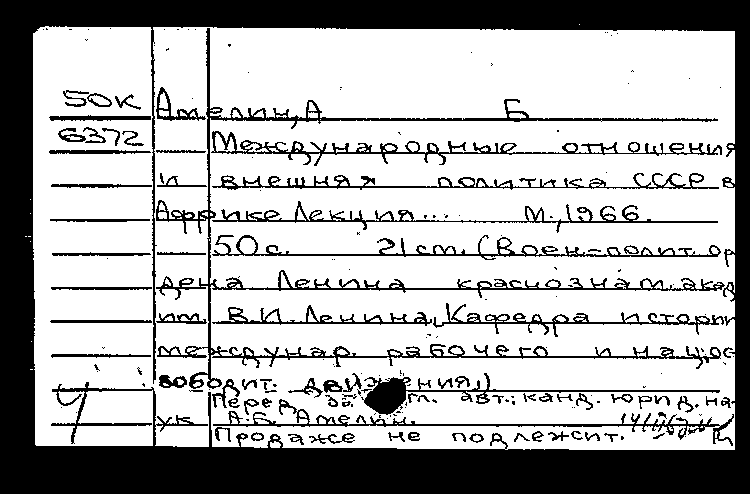 50К Амелин, А Б
6372 Международные отношения
и внешняя политика СССР в
Африке Лекция... М., 1966.
50 с. 21 cm. (Воен-полит. ор
дена Ленина краснознам. акад
им. В.И. Ленина, Кафедра истории
междунар. рабочего и нац. ос
вободит. движения.)
Перед авт.: канд. юрид. на-
ук А.Б. Амелин.
Продаже не подлежит.